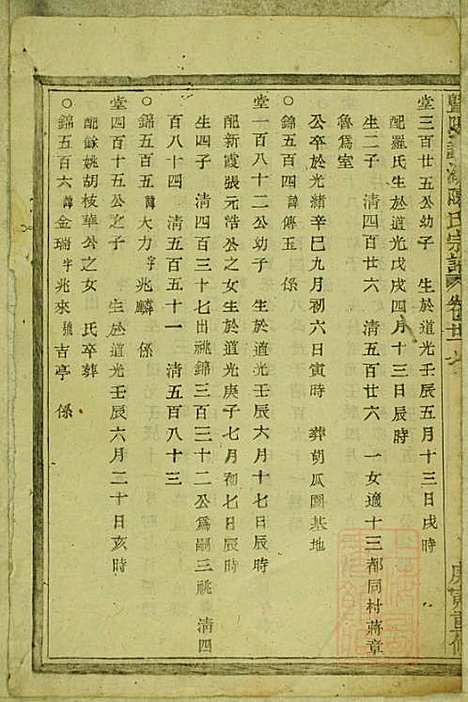 堂三百廿五公幼子 生於道光壬辰五月十三日戌時
配羅氏生於道光戊戌四月十三日辰時
生二子 清四百廿六 清五百廿六 一女適十三都同村蔣章
魯爲室
公卒於光緒辛巳九月初六日寅時 葬胡瓜園基地
○錦五百四諱傳玉 係
堂一百八十二公幼子 生於道光壬辰六月十七日辰時
配新霞張元浩公之女生於道光庚子七月初七日辰時
生四子 清四百三十七出祧錦三百三十二公爲嗣三祧 清四
百八十四 清五百五十一 清五百八十三
○錦五百五諱大力字兆麟 係
堂四百十五公之子 生於道光壬辰六月二十日亥時
配餘姚胡枝華公之女 氏卒葬
○錦五百六諱金瑞字兆來號吉亭 係
陳氏宗譜 卷廿
庚寅重修